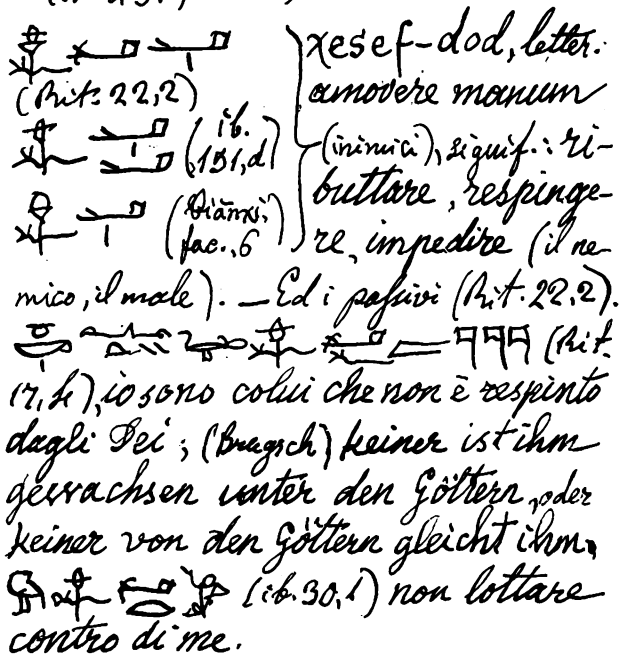 xesef-dod, letter.
(Rit. 22,2) amovere manum
(ib. 151,d) (inimici), signif.: ri-
buttare, respinge-
fac., 6) re, impedire (il ne-
mico, il male). — Ed i passivi (Rit. 22.2).
(Rit.
17, 4), io sono colui che non è respinto
dagli Dei; (Brugsch) keiner ist ihm
gewachsen unter den Göttern, oder
keiner von den Göttern gleicht ihm,
(ib. 30, 1) non lottare
contro di me.